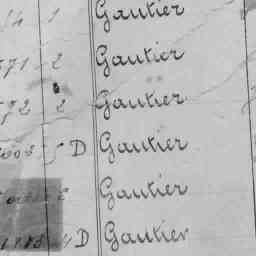 1 Gautier
571 2 Gautier
572 2 Gautier
5 D Gautier
2 Gautier
4 D Gautier